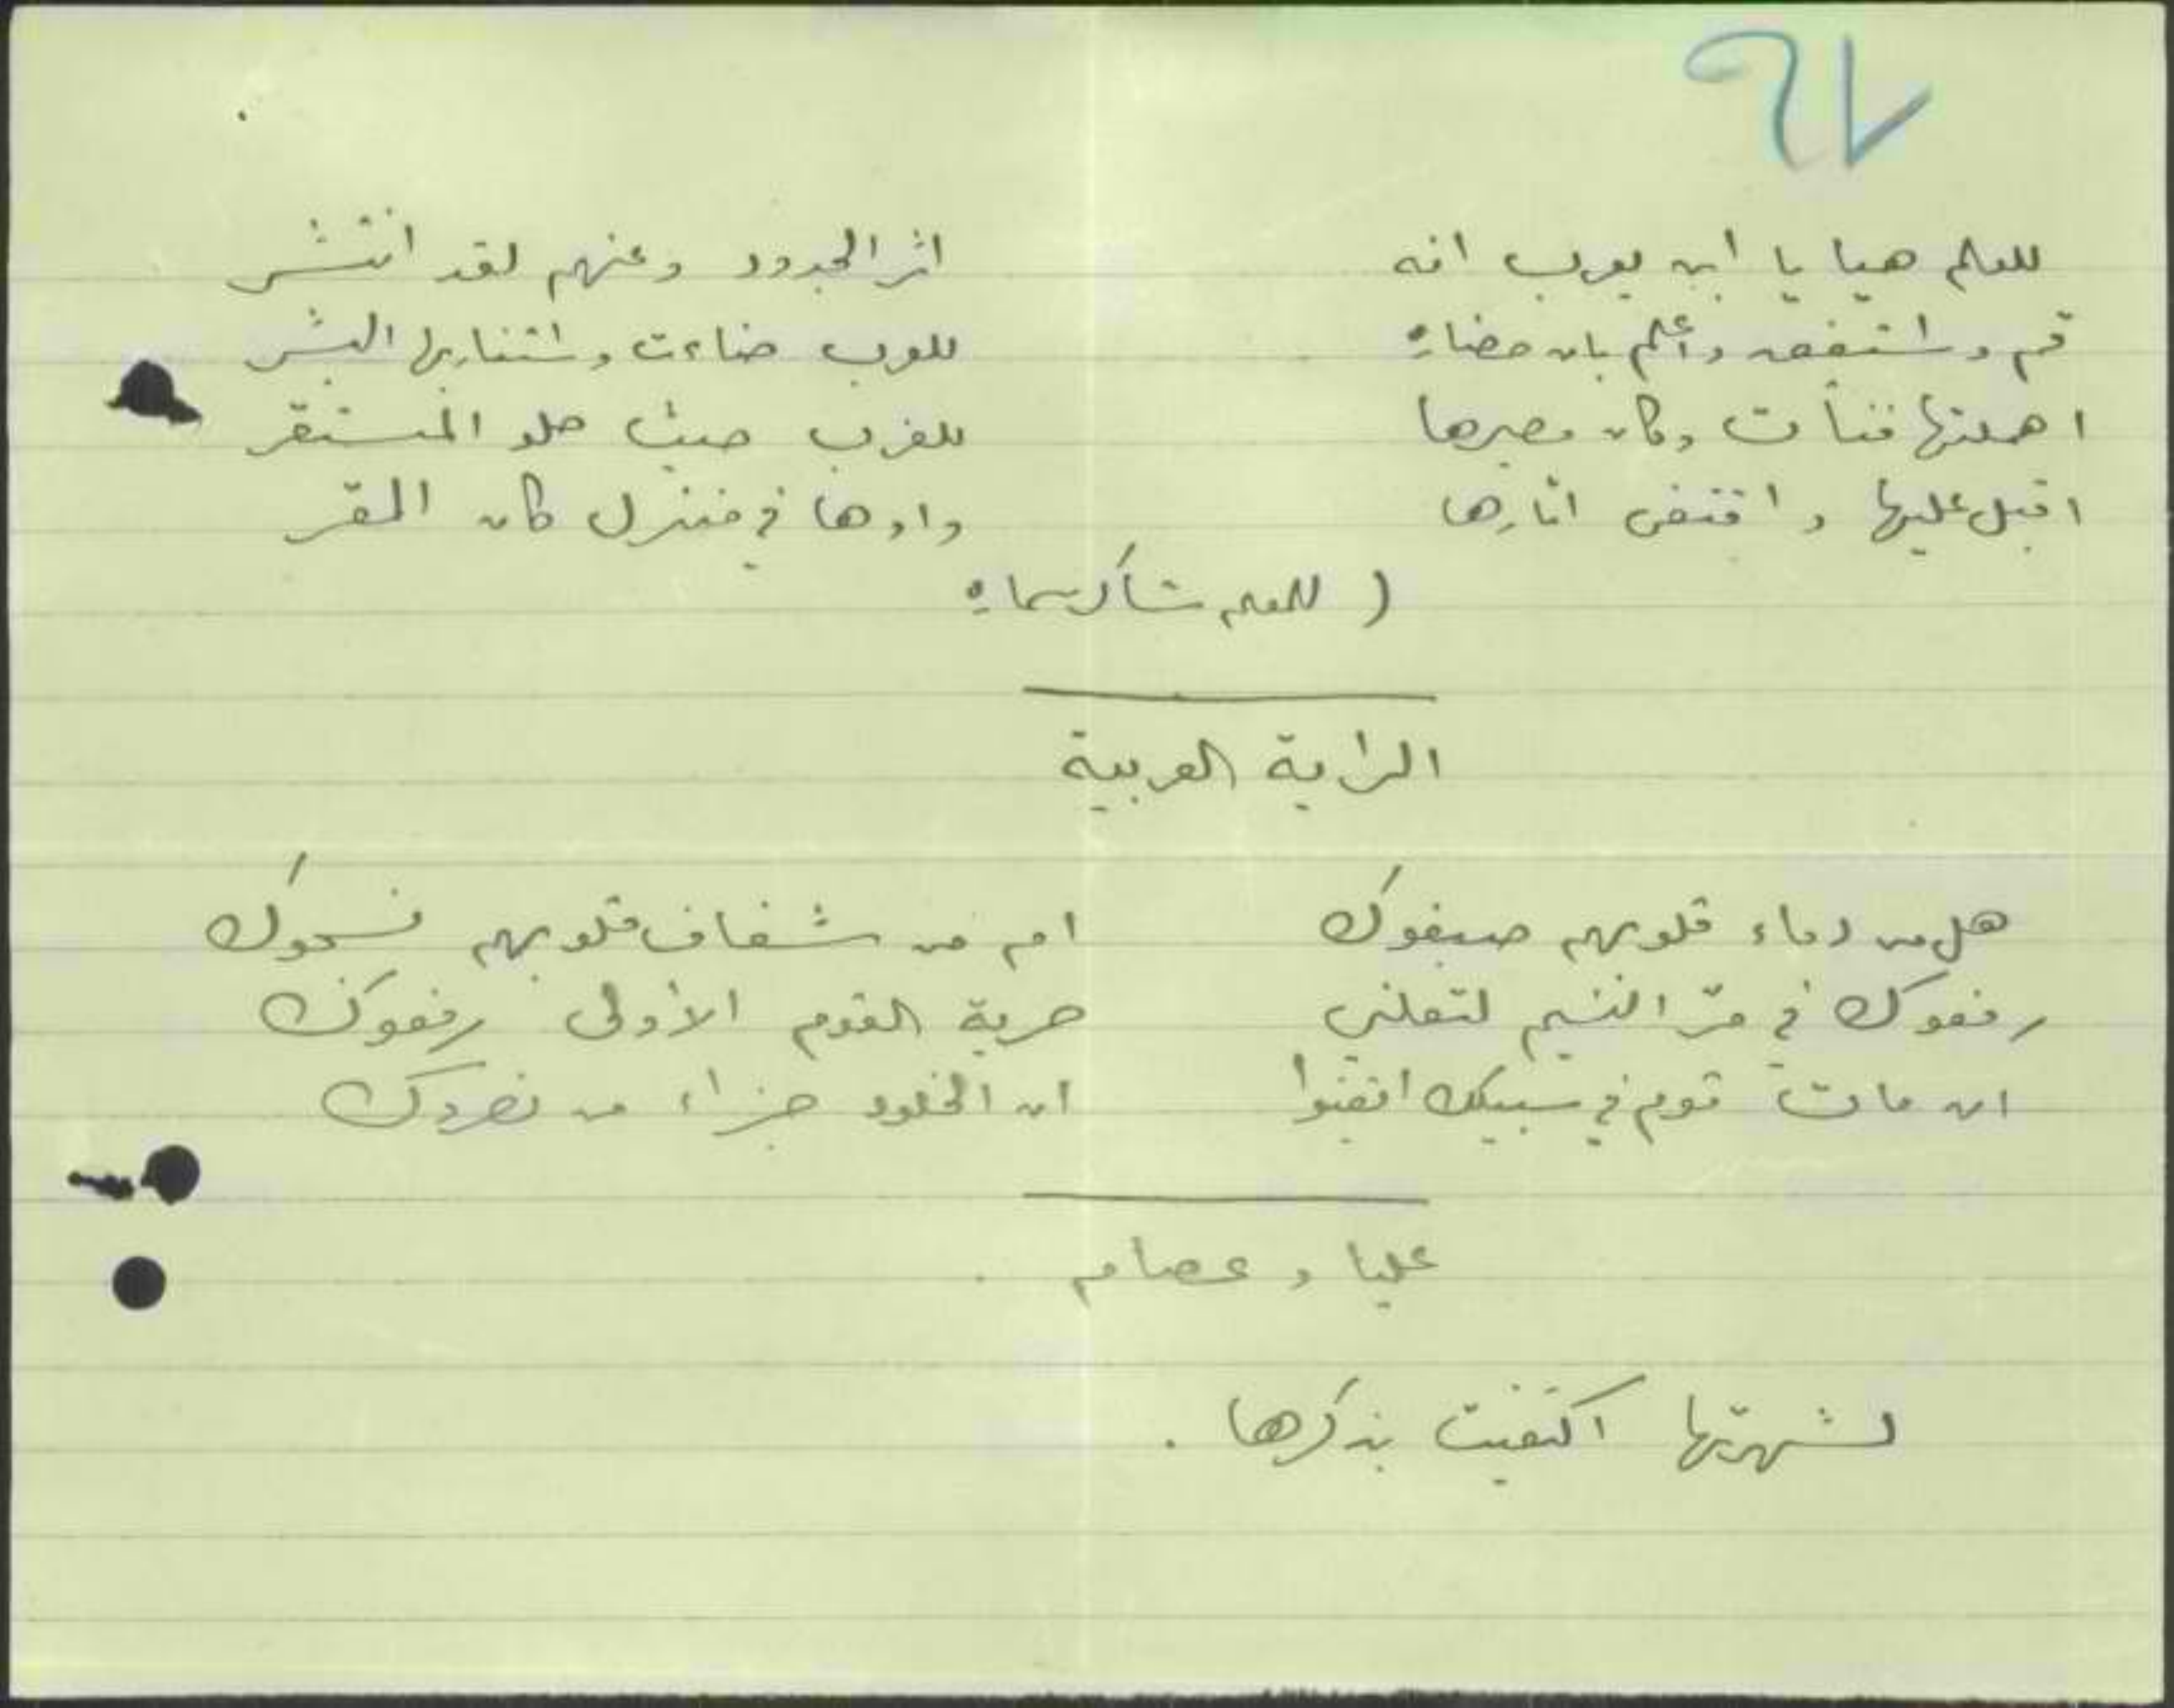 ٩٧
للعلم هيا يا ابن يعرب انه اثر الجدود وعنهم لقد انتشر
قم واستفق وأعلم بان حضارة للعرب ضاءت واستنار بها البشر
اهملتها فنأت وكان مصيرها للغرب حيث حلو المستقر
اقبل عليها واقتفى اثارها في منزل كان المقر
( للمعلم شاكر سماره
الراية العربية
هل من دماء قلوبهم صبغوك ام من شغاف قلوبهم نسجوك
رفعوك في مرّ النسيم لتعلني حرية القوم الأولى رفعوك
ان مات قوم في سبيلك ايقنوا ان الخلود جزاء من نصروك
عليا وعصام .
لشهرتها اكتفيت بذكرها .